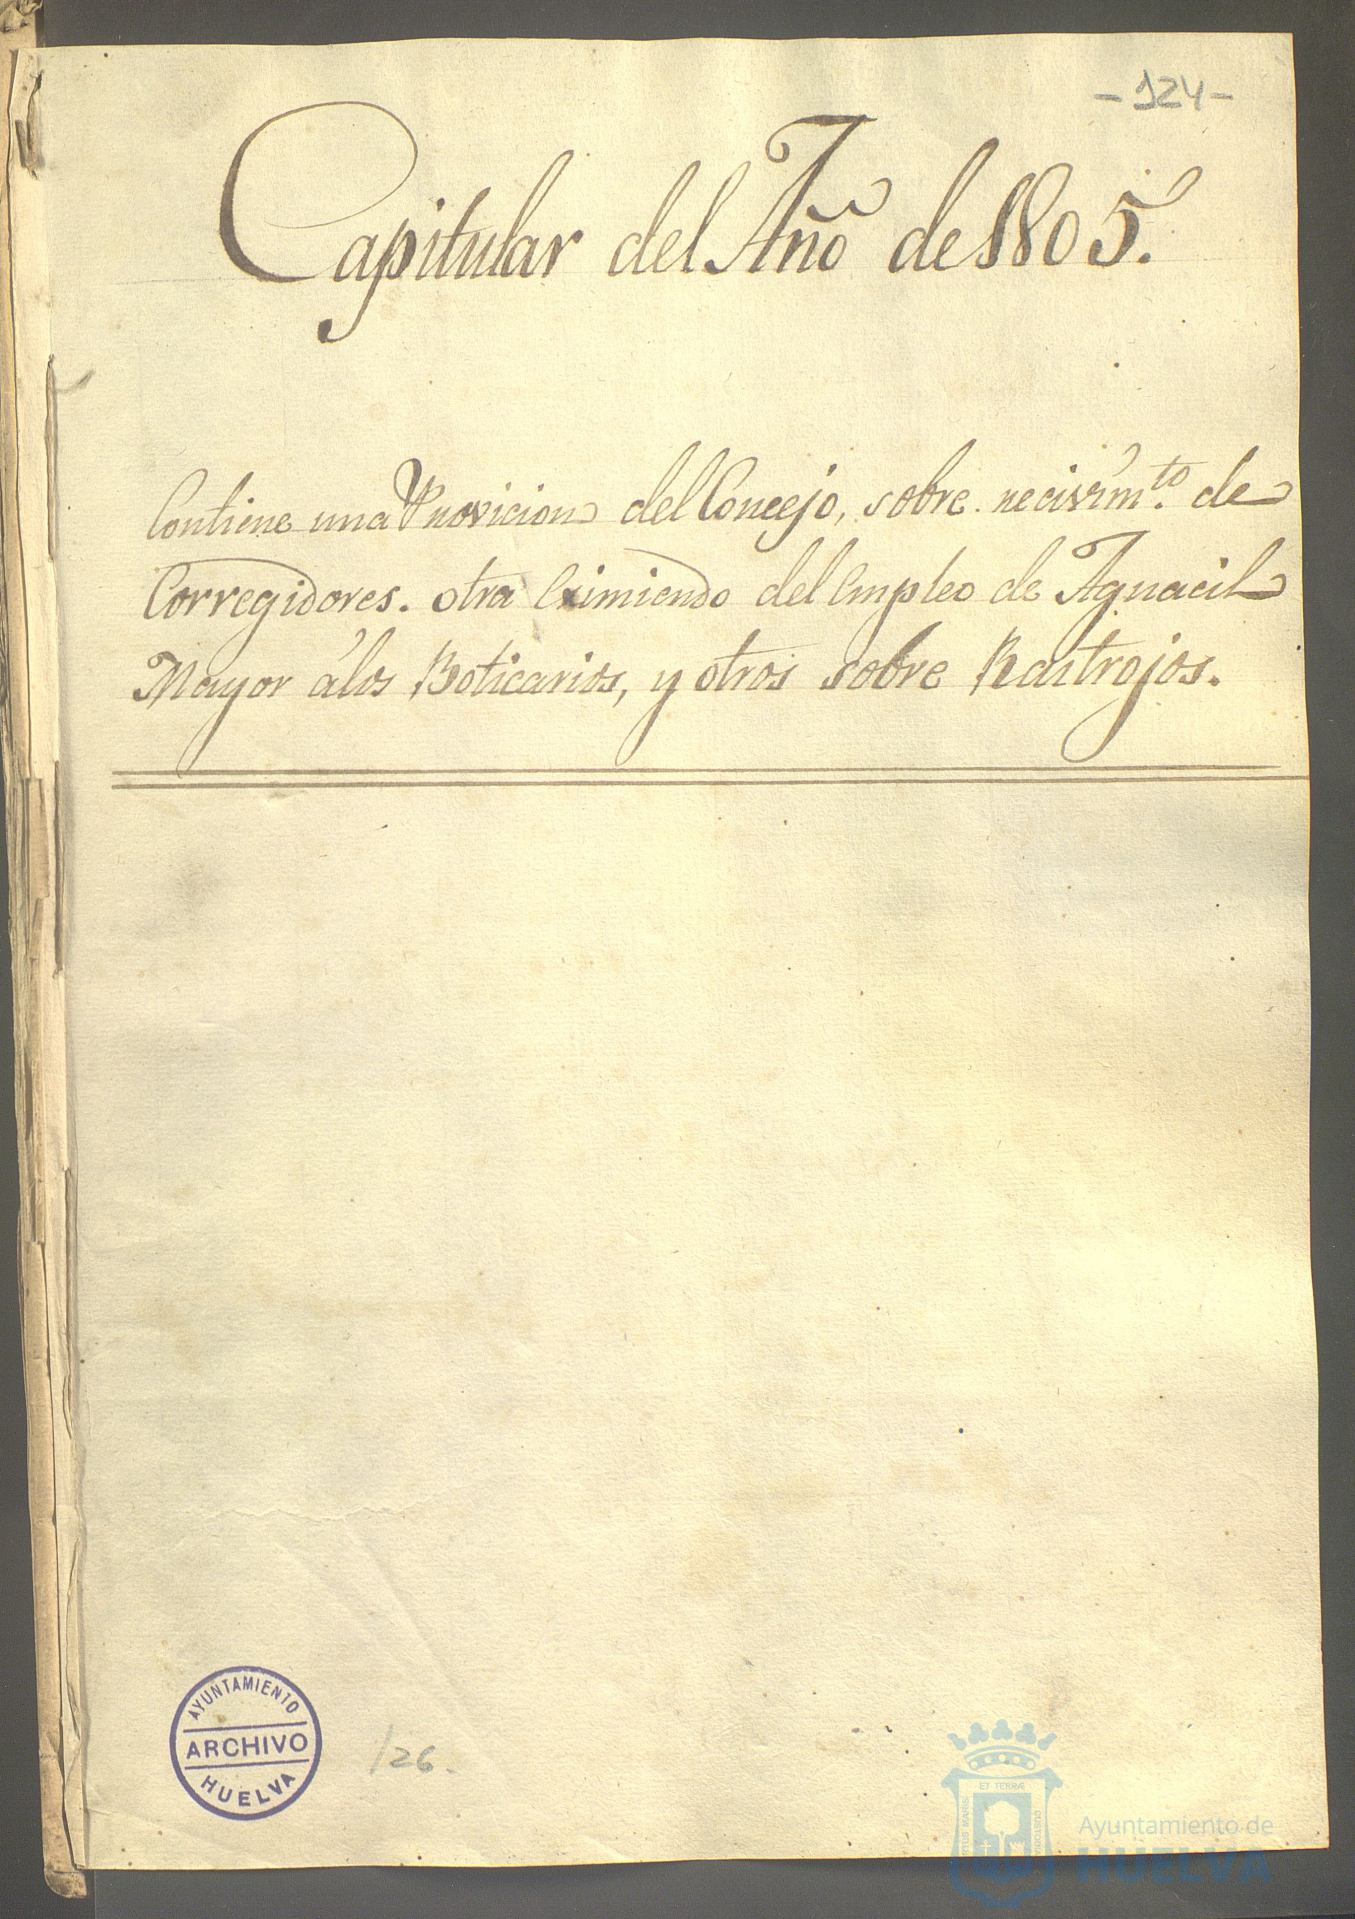 - 124 -
Capitular del Año de 1805.
Contiene una Provicion del Concejo, sobre recivim.to de
Corregidores. otra Eximiendo del Empleo de Aguacil
Mayor á los Boticarios, y otros sobre Rastrojos.
AYUNTAMIENTO
ARCHIVO
HUELVA
126.
ET TERRÆ
PORTUS MARIS
CUSTODIA
Ayuntamiento de
HUELVA